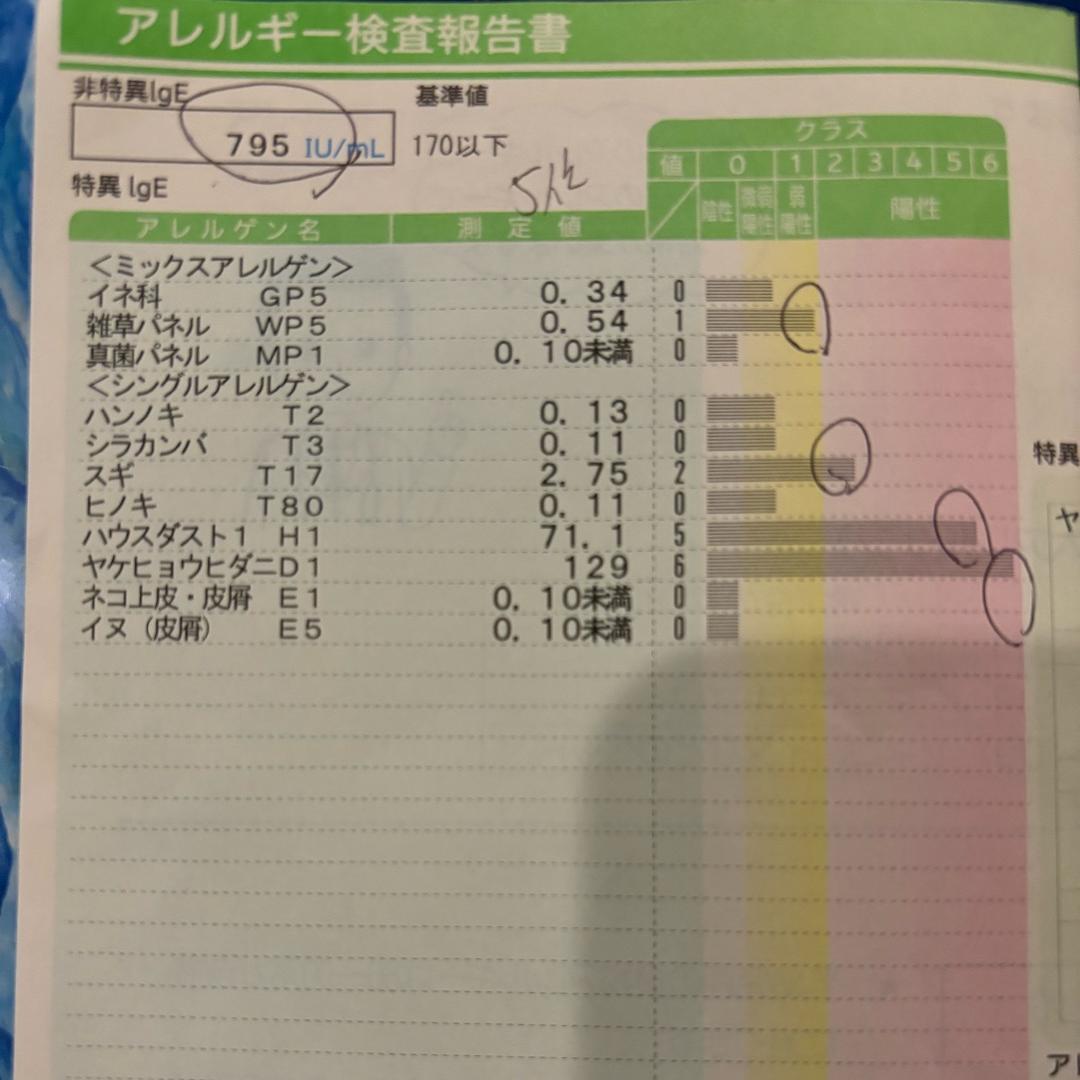 アレルギー検査報告書
非特異IgE 基準値
795 IU/mL 170以下
特異 IgE
クラス
値 0 1 2 3 4 5 6
陰性 微弱陽性 弱陽性 陽性
アレルゲン名 測定値
＜ミックスアレルゲン＞
イネ科 GP5 0.34 0
雑草パネル WP5 0.54 1
真菌パネル MP1 0.10未満 0
＜シングルアレルゲン＞
ハンノキ T2 0.13 0
シラカンバ T3 0.11 0
スギ T17 2.75 2
ヒノキ T80 0.11 0
ハウスダスト1 H1 71.1 5
ヤケヒョウヒダニD1 129 6
ネコ上皮・皮屑 E1 0.10未満 0
イヌ（皮屑） E5 0.10未満 0
特異
ヤ